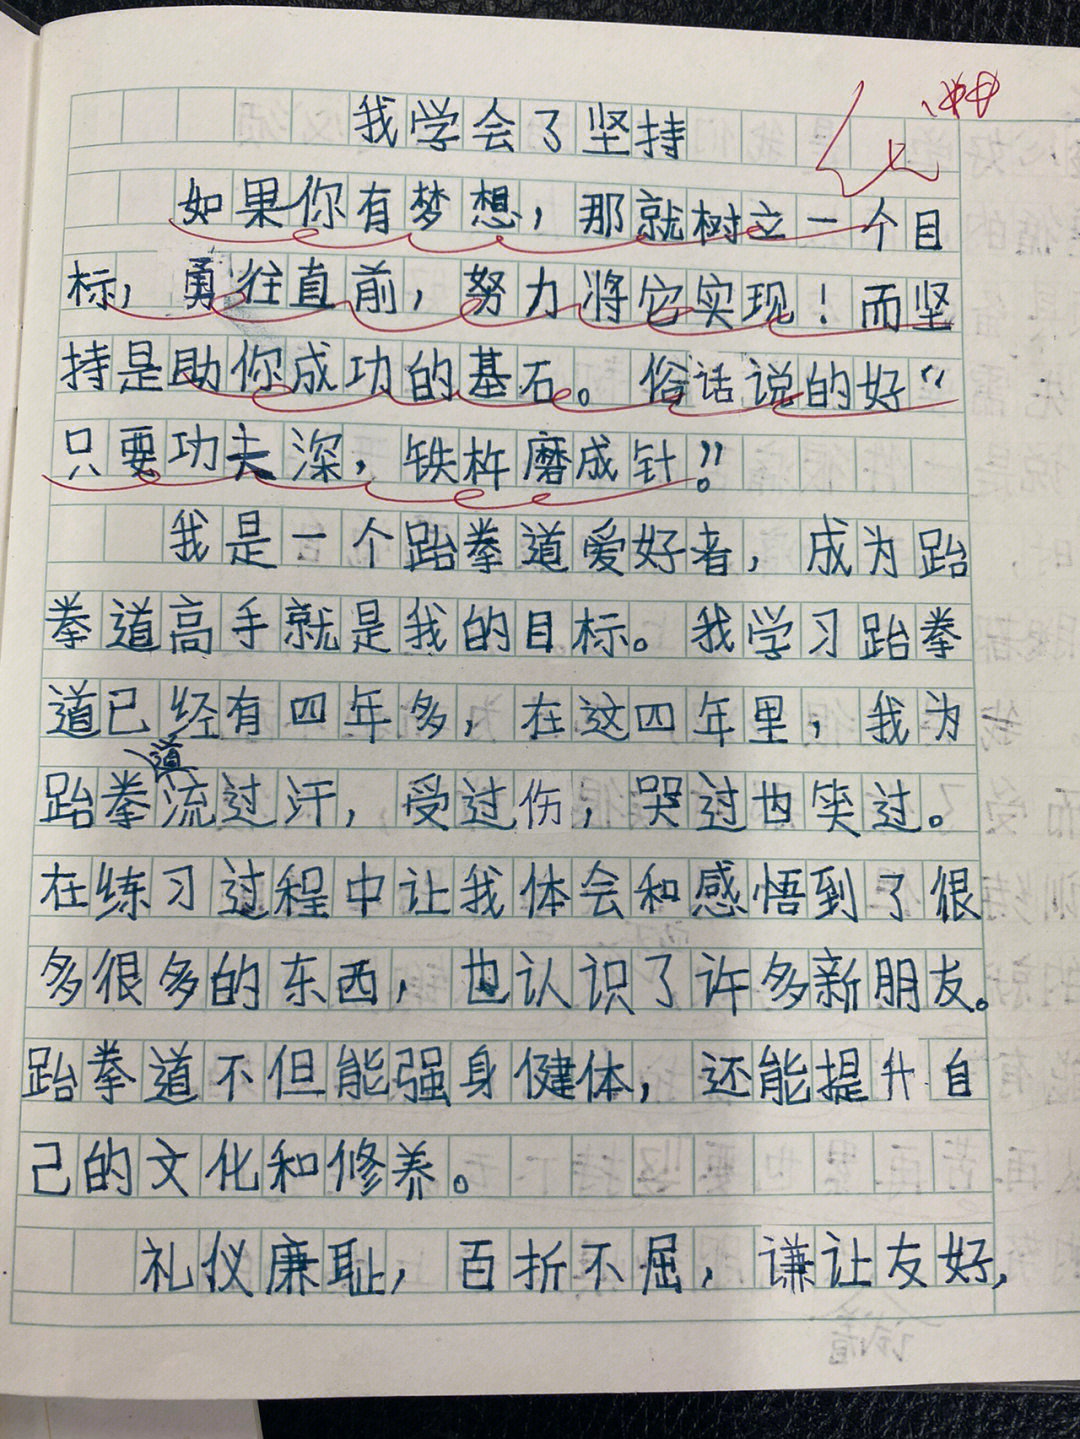 我学会了坚持
如果你有梦想，那就树立一个目
标，勇往直前，努力将它实现！而坚
持是助你成功的基石。俗话说的好“
只要功夫深，铁杵磨成针！”
我是一个跆拳道爱好者，成为跆
拳道高手就是我的目标。我学习跆拳
道已经有四年多，在这四年里，我为
跆拳道流过汗，受过伤，哭过也笑过。
在练习过程中让我体会和感悟到了很
多很多的东西，也认识了许多新朋友。
跆拳道不但能强身健体，还能提升自
己的文化和修养。
礼仪廉耻，百折不屈，谦让友好，